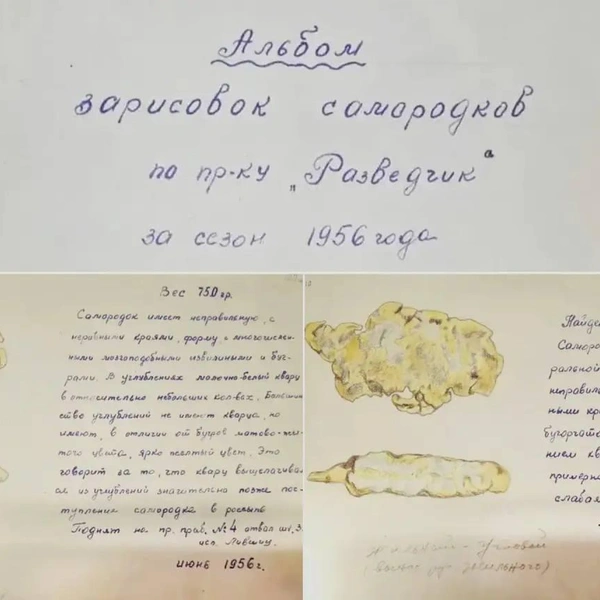 Альбом
зарисовок самородков
по пр-ку „Разведчик"
за сезон 1956 года
Вес 750 гр.
Самородок имеет неправильную, с
неровными краями, форму, с многочислен-
ными мозгоподобными извилинами и буг-
рами. В углублениях молочно-белый кварц
в относительно небольших кол-вах. Большин
ство углублений не имеют кварца, но
имеют, в отличии от бугров матово-жел-
того цвета, ярко желтый цвет. Это
говорит за то, что кварц выщелачивал-
ся из углублений значительно позже пос-
тупления самородка в россыпь
Поднят на пр. прав. № 4 отвал ш.
июнь 1956 г.
Найде
Саморо
ральной
неправиль
ными кра
бугорчато
нием кв
примерно
слабой